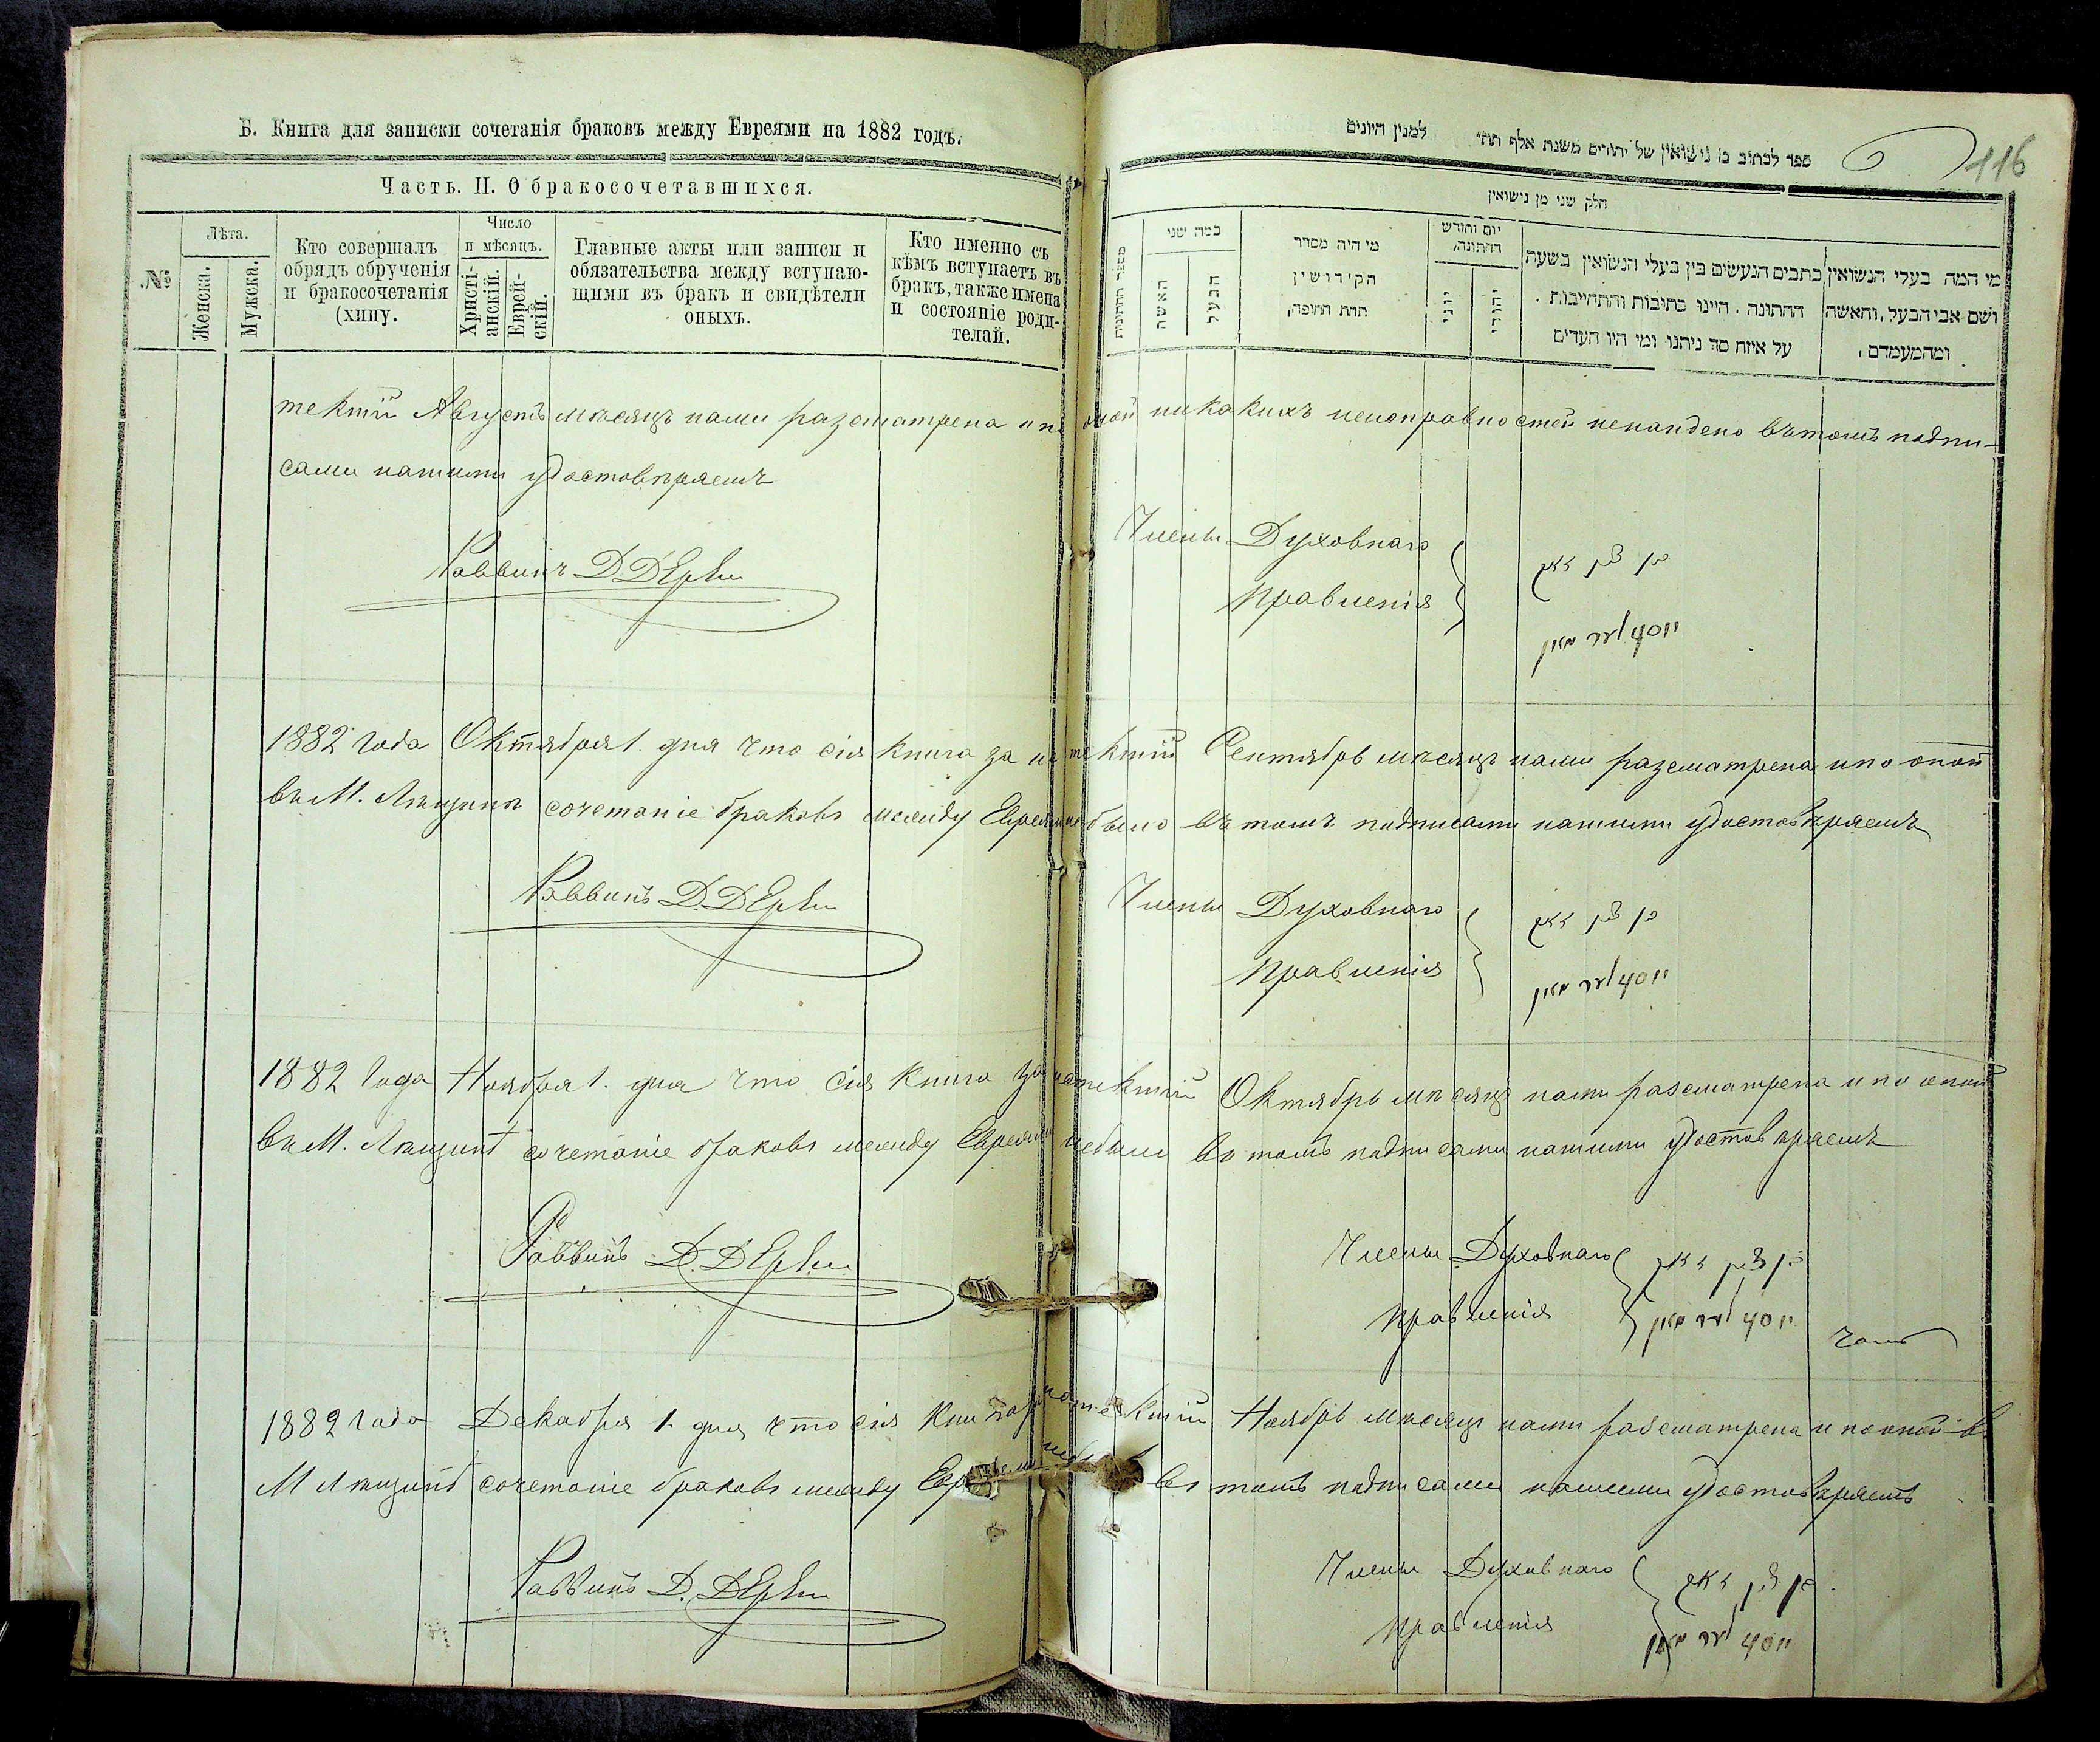 Б. Книга для записки сочетанія браковъ между Евреями на 1882 годъ.
Часть. II. О бракосочетавшихся.
№
Лѣта.
Женска.
Мужска.
Кто совершалъ
обрядъ обрученія
и бракосочетанія
(хипу.
Число
и мѣсяцъ.
Христі-
анскій.
Еврей-
скій.
Главные акты или записи и
обязательства между вступаю-
щими въ бракъ и свидѣтели
оныхъ.
Кто именно съ
кѣмъ вступаетъ въ
бракъ, также имена
и состояніе роди-
телай.
ספר לכתוב בו נישואין של יהודים משנת אלף תת״ למנין היונים
116
חלק שני מן נישואין
מספר החתונות
כמה שני
האשה
הבעל
מי היה מסדר
הקידושין
תחת החופה,
יום וחודש
החתונה,
יוני
יהודי
כתבים הנעשים בין בעלי הנשואין בשעה
החתונה. היינו כתובות והתחייבות.
על איזה סך ניתנו ומי היו העדים
מי המה בעלי הנשואין
ושם אבי הבעל, והאשה
ומהמעמדם,
тектій Августъ мѣсяцъ нами разсматрена и по оной никакихъ неисправностей ненайдено въ томъ подпи-
сами нашими удостовѣряемъ
Раввинъ Д.
Члены Духовнаго
Правленія
1882 Года Октября 1. дня что сія книга за истектій Сентябрь мѣсяцъ нами разсматрена и по оной
въ М. сочетаніе браковъ между Евреями не было въ томъ подписами нашими удостовѣряемъ
Раввинъ Д.
Члены Духовнаго
Правленія
1882 Года Ноября 1. дня что сія книга за истектій Октябрь мѣсяцъ нами разсматрена и по оной
въ М. сочетаніе браковъ между Евреями небыло въ томъ подписами нашими удостовѣряемъ
Раввинъ Д.
Члены Духовнаго
Правленія
1882 года Декабря 1. дня что сія книга за истектій Ноябрь мѣсяцъ нами разсматрена и по оной в
М сочетаніе браковъ между въ томъ подписами нашими удостовѣряемъ
Раввинъ Д.
Члены Духовнаго
Правленія